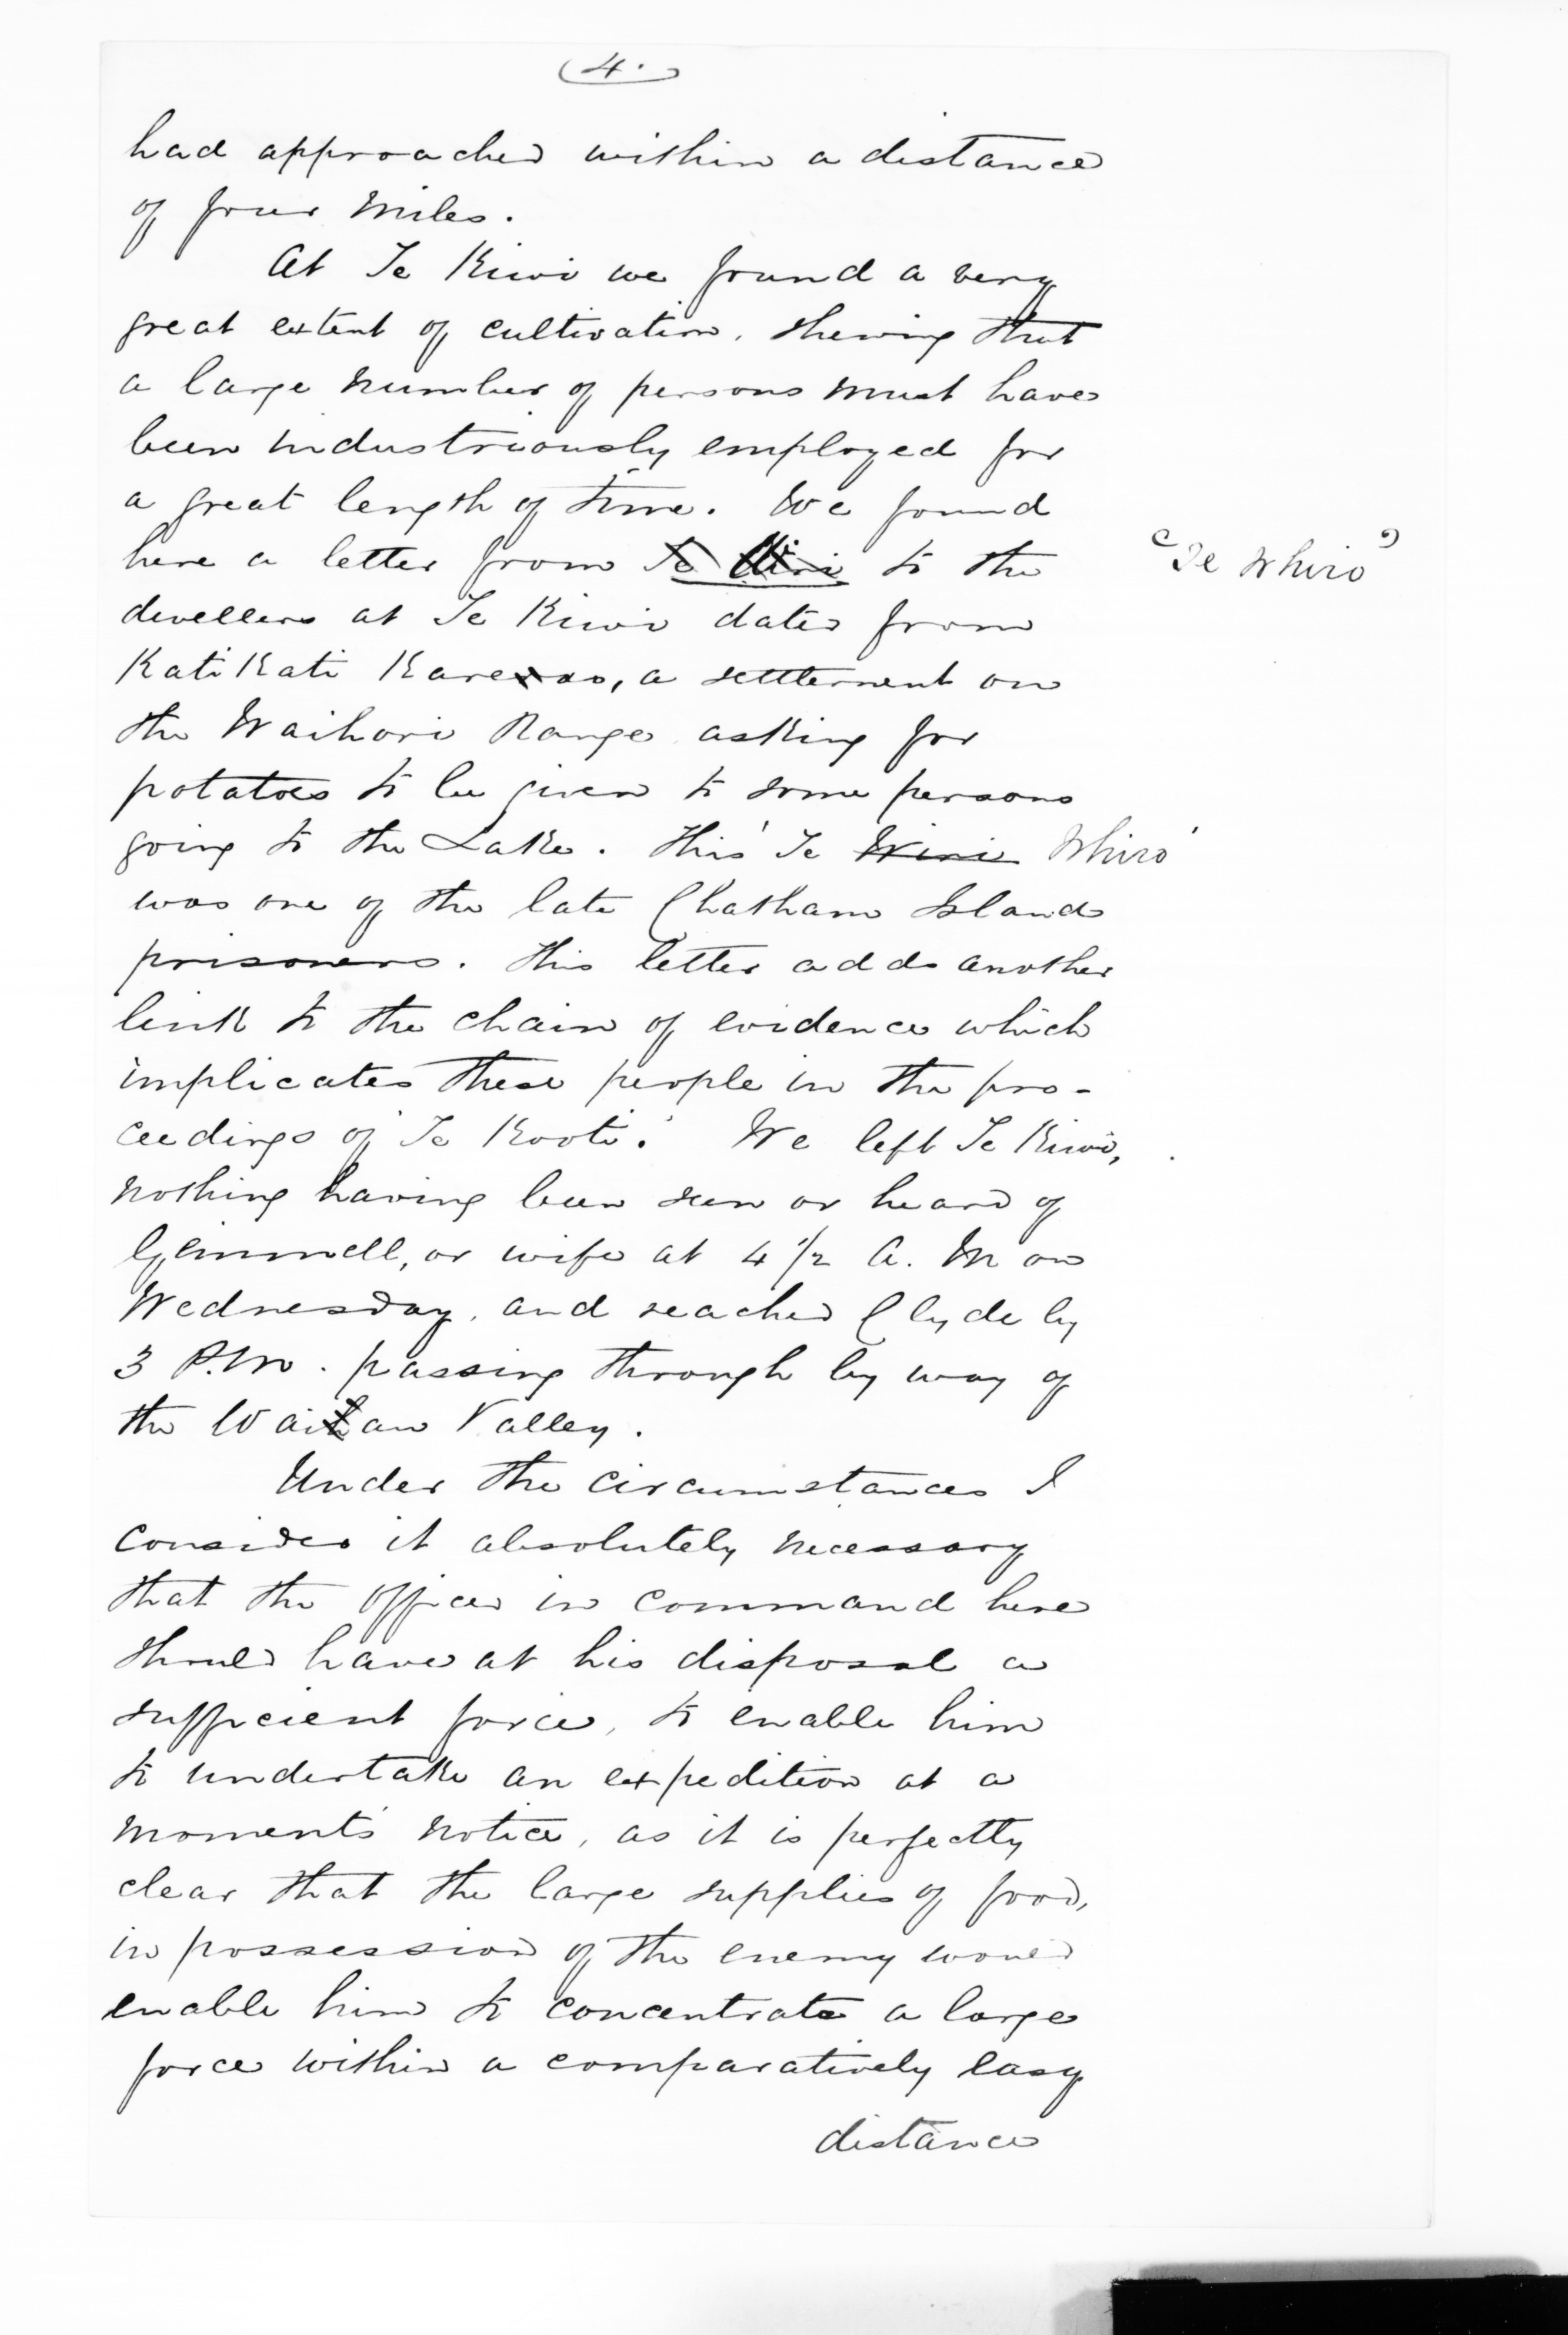 (4.)
had approached within a distance
of four miles.
At Te Kiwi we found a very
great extent of cultivation, shewing that
a large number of persons must have
been industriously employed for
a great length of time. We found
here a letter from Te to the "Te Whiro"
dwellers at Te Kiwi dated from
KatiKati a settlement on
the Waihori Range asking for
potatoes to be given to some persons
going to the Lake. This 'Te Wini Whiro'
was one of the late Chatham Island
prisoners. This letter adds another
link to the chain of evidence which
implicates these people in the pro-
ceedings of 'Te Kooti.' We left Te Kiwi,
nothing having been seen or heard of
Gemmell, or wife at 4 1/2 A. M on
Wednesday, and reached Clyde by
3 P.M. passing through by way of
the Valley.
Under the circumstances I
consider it absolutely necessary
that the officer in command here
should have at his disposal a
sufficient force, to enable him
to undertake an expedition at a
moment's notice, as it is perfectly
clear that the large supplies of food,
in possession of the enemy would
enable him to concentrate a large
force within a comparatively easy
distance